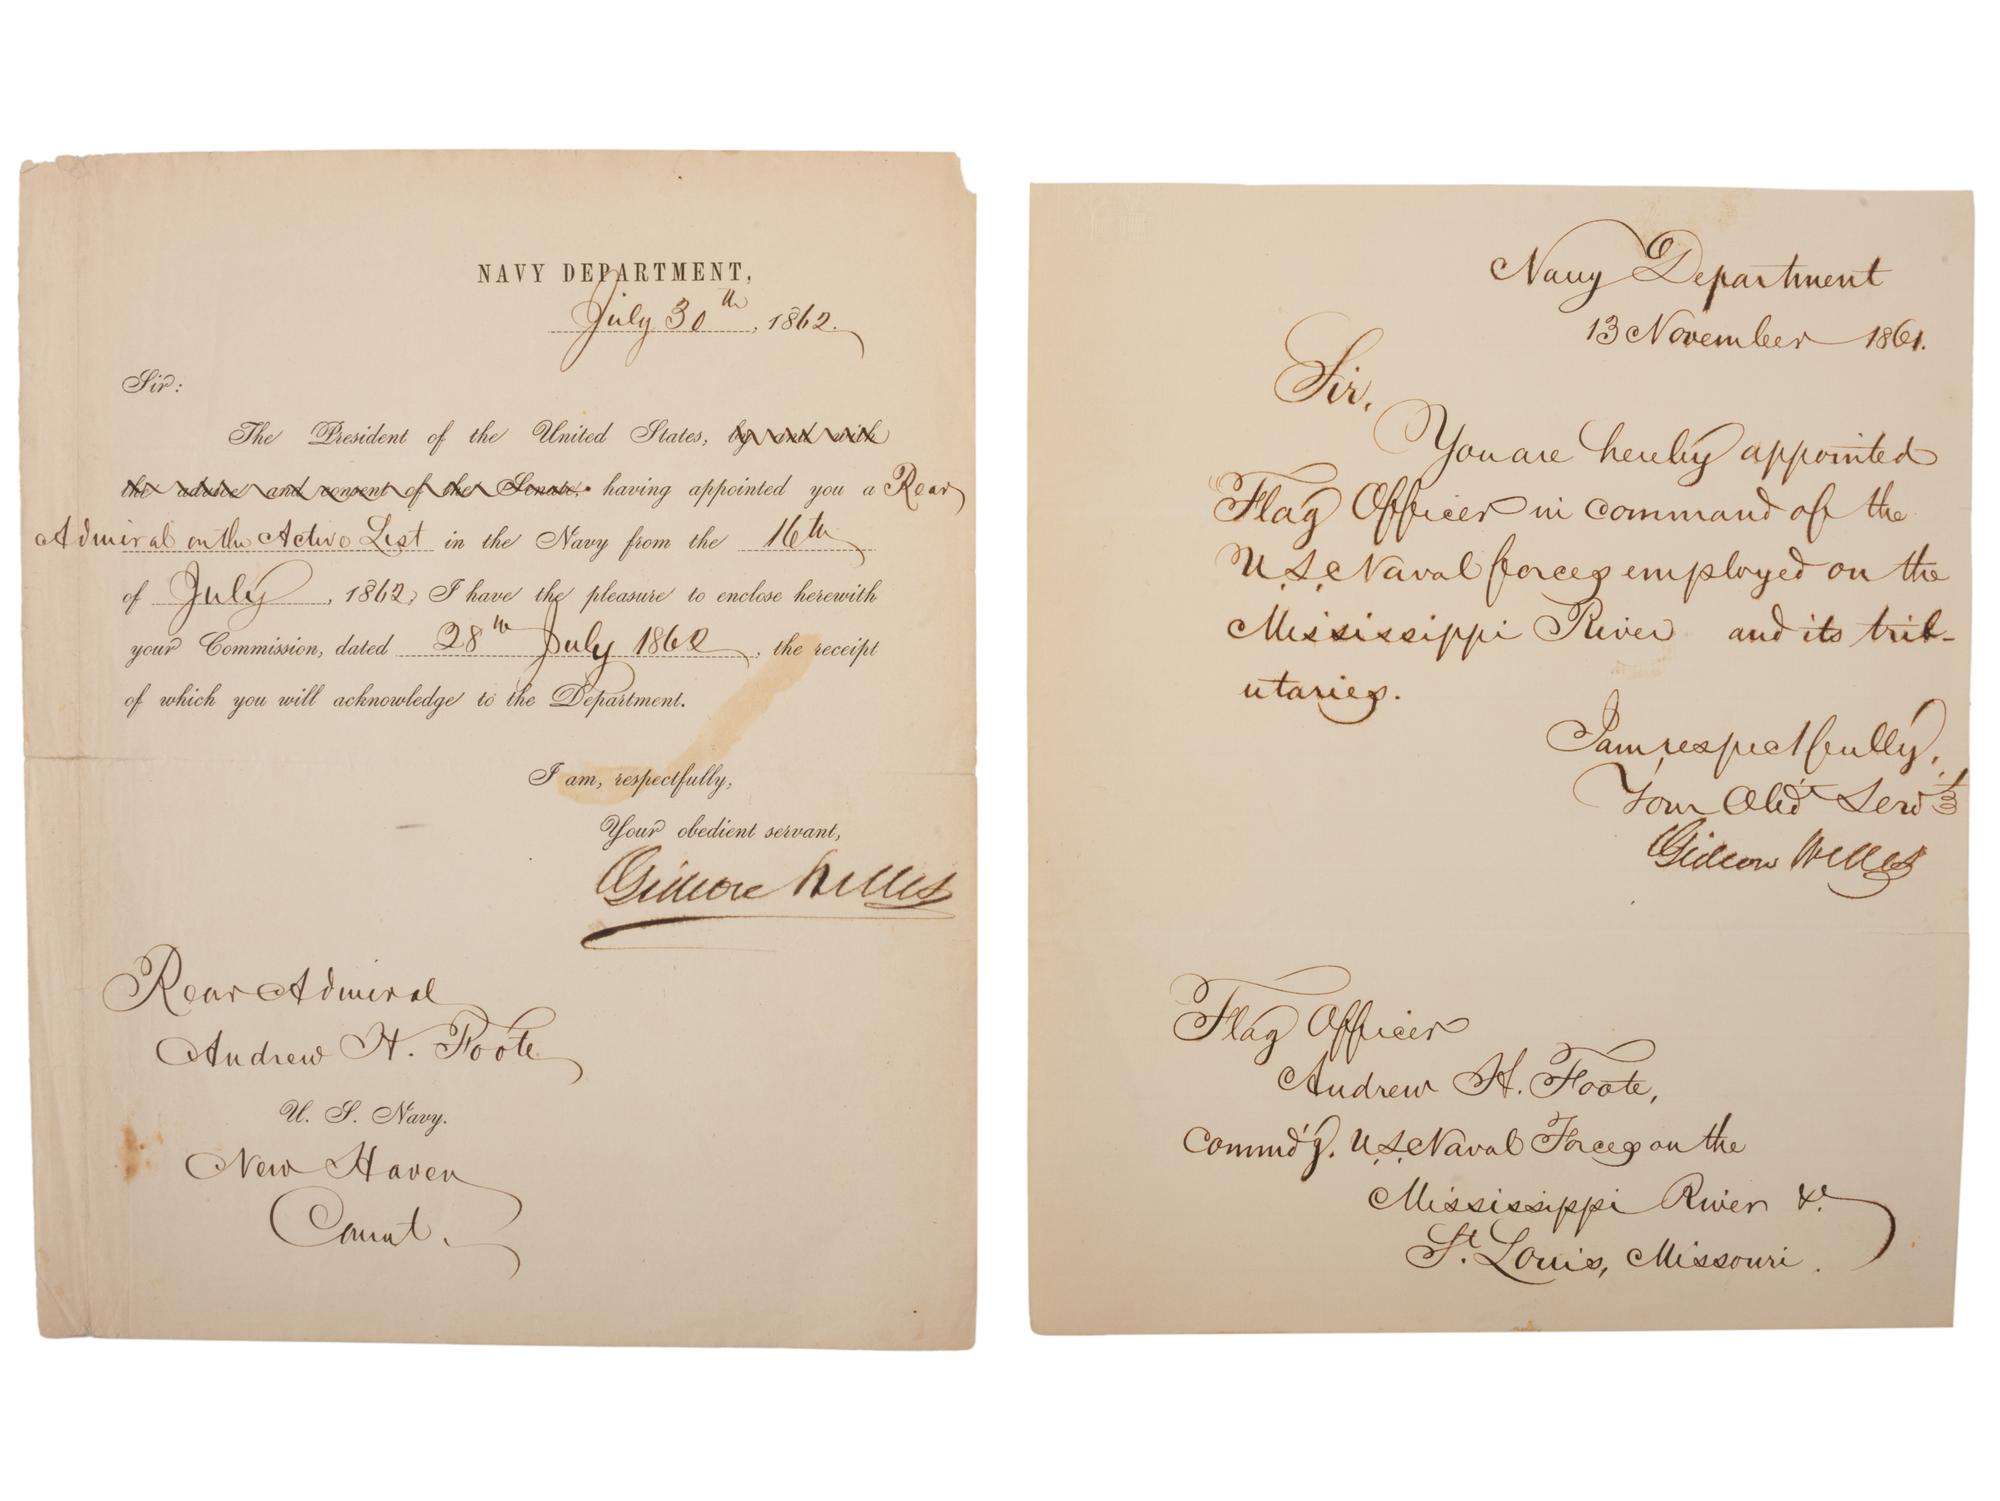 NAVY DEPARTMENT,
July 30th, 1862.
Sir:
The President of the United States, by and with
the advice and consent of the Senate, having appointed you a Rear
Admiral on the Active List in the Navy from the 16th
of July, 1862, I have the pleasure to enclose herewith
your Commission, dated 28th July 1862, the receipt
of which you will acknowledge to the Department.
I am, respectfully,
Your obedient servant,
Gideon Welles
Rear Admiral
Andrew H. Foote
U. S. Navy.
New Haven
Connt.
Navy Department
13 November 1861.
Sir,
You are hereby appointed
Flag Officer in command of the
U.S. Naval forces employed on the
Mississippi River and its trib-
utaries.
I am respectfully,
Your Obdt Servt
Gideon Welles
Flag Officer
Andrew H. Foote,
Commd'g. U.S. Naval Forces on the
Mississippi River &c.
St. Louis, Missouri.